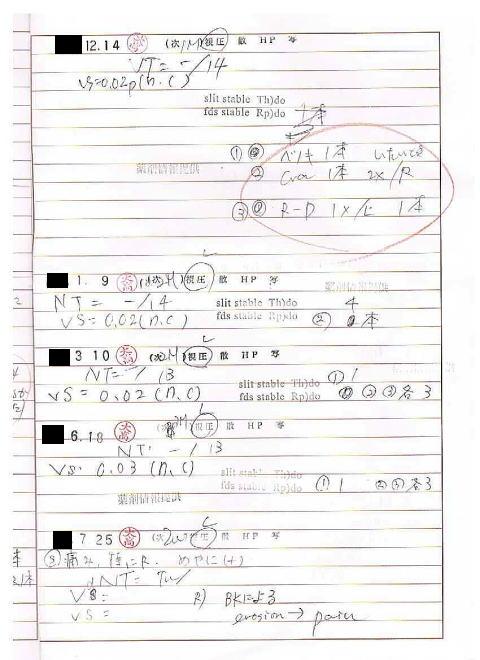 12.14 (次1M) 視圧 散 HP 写
NT = - / 14
VS=0.02p(n.c)
slit stable Th)do
fds stable Rp)do 1本
① 1本
薬剤情報提供
② 1本 2x/R
③ R-D 1x/L 1本
L
1. 9 視圧 散 HP 写
薬剤情報提供
NT = - /14 slit stable Th)do 4
VS=0.02(n.c) fds stable Rp)do ② 本
L
3 10 (次2M) 視圧 散 HP 写
NT = - / 13 ① 1
VS=0.02(n.c) slit stable Th)do
fds stable Rp)do ②③各3
L
6.18 視圧 散 HP 写
NT: - / 13
VS: 0.03 (n.c) slit stable Th)do
fds stable Rp)do ① 1 ②③各3
薬剤情報提供
L
7 25 (次2w) 視圧 散 HP 写
痛み, 特にR. めやに(+)
NT=
VS= R) BKによる
VS= erosion → pain